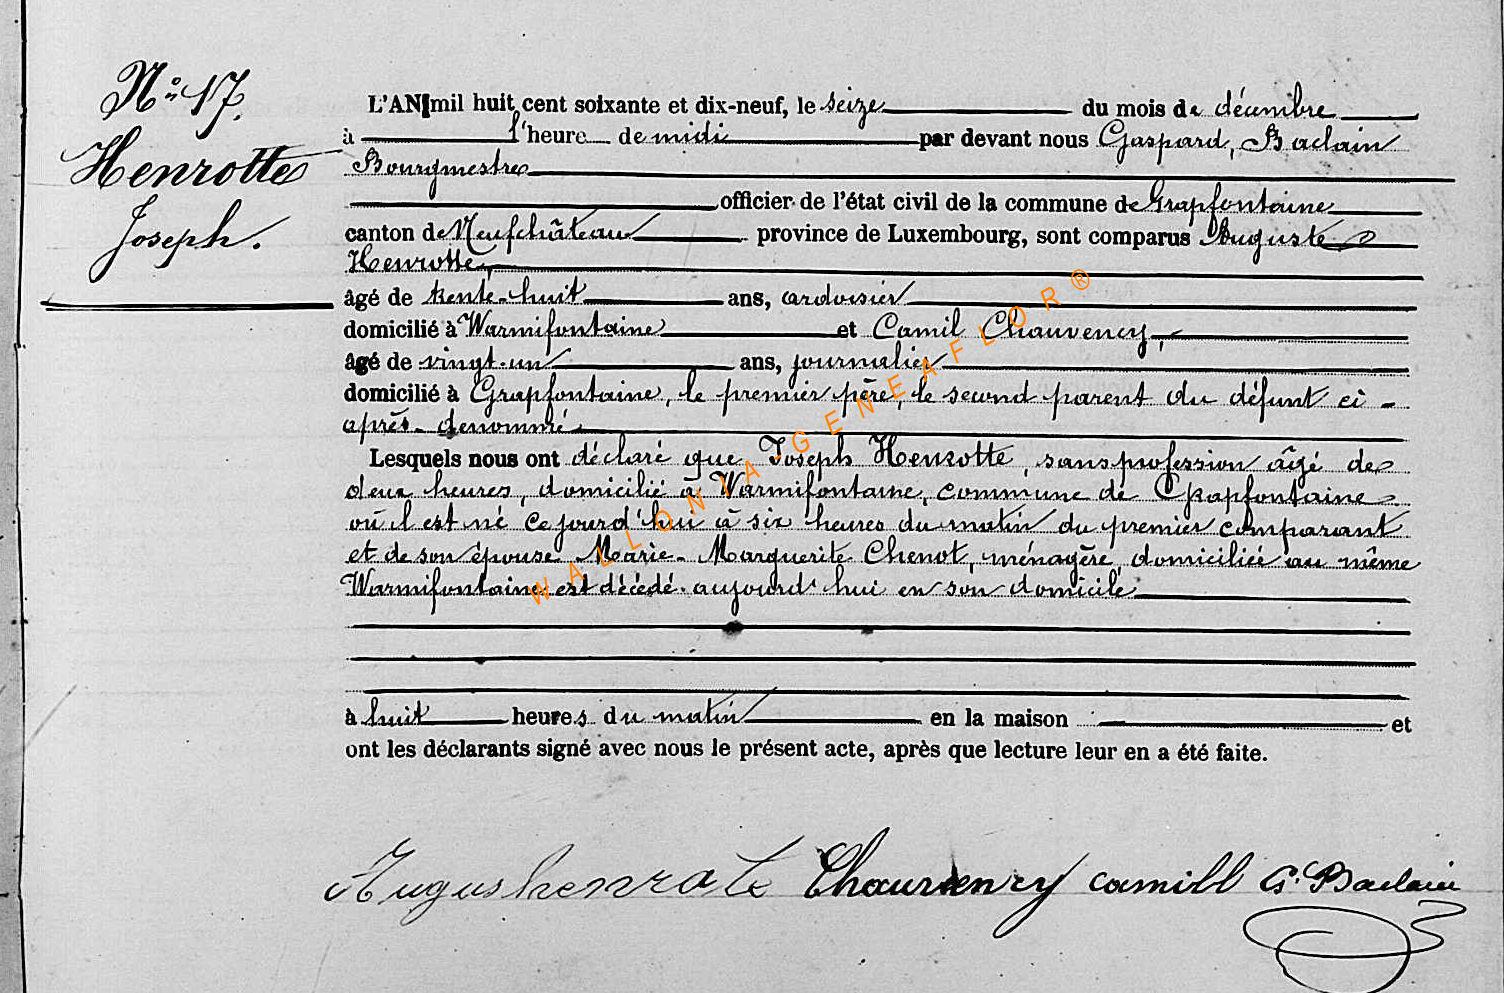 N° 17.
Henrotte
Joseph.
L'AN mil huit cent soixante et dix-neuf, le seize du mois de décembre
à l'heure de midi par devant nous Gaspard, Baclain
Bourgmestre
officier de l'état civil de la commune de Grapfontaine
canton de Neufchâteau province de Luxembourg, sont comparus Auguste
Henrotte,
âgé de trente-huit ans, ardoisier
domicilié à Warmifontaine et Camil Chauvency,
âgé de vingt-un ans, journalier
domicilié à Grapfontaine, le premier père, le second parent du défunt ci-
après-dénommé
Lesquels nous ont déclaré que Joseph Henrotte, sans profession âgé de
deux heures, domicilié à Warmifontaine, commune de Grapfontaine
où il est né ce jourd'hui à six heures du matin du premier comparant
et de son épouse Marie-Marguerite Chenot, ménagère, domiciliée au même
Warmifontaine est décédé aujourd'hui en son domicile
à huit heures du matin en la maison et
ont les déclarants signé avec nous le présent acte, après que lecture leur en a été faite.
Augus henrote Chauvency camill G. Baclain
WALLONIA-GENEAFLOR®